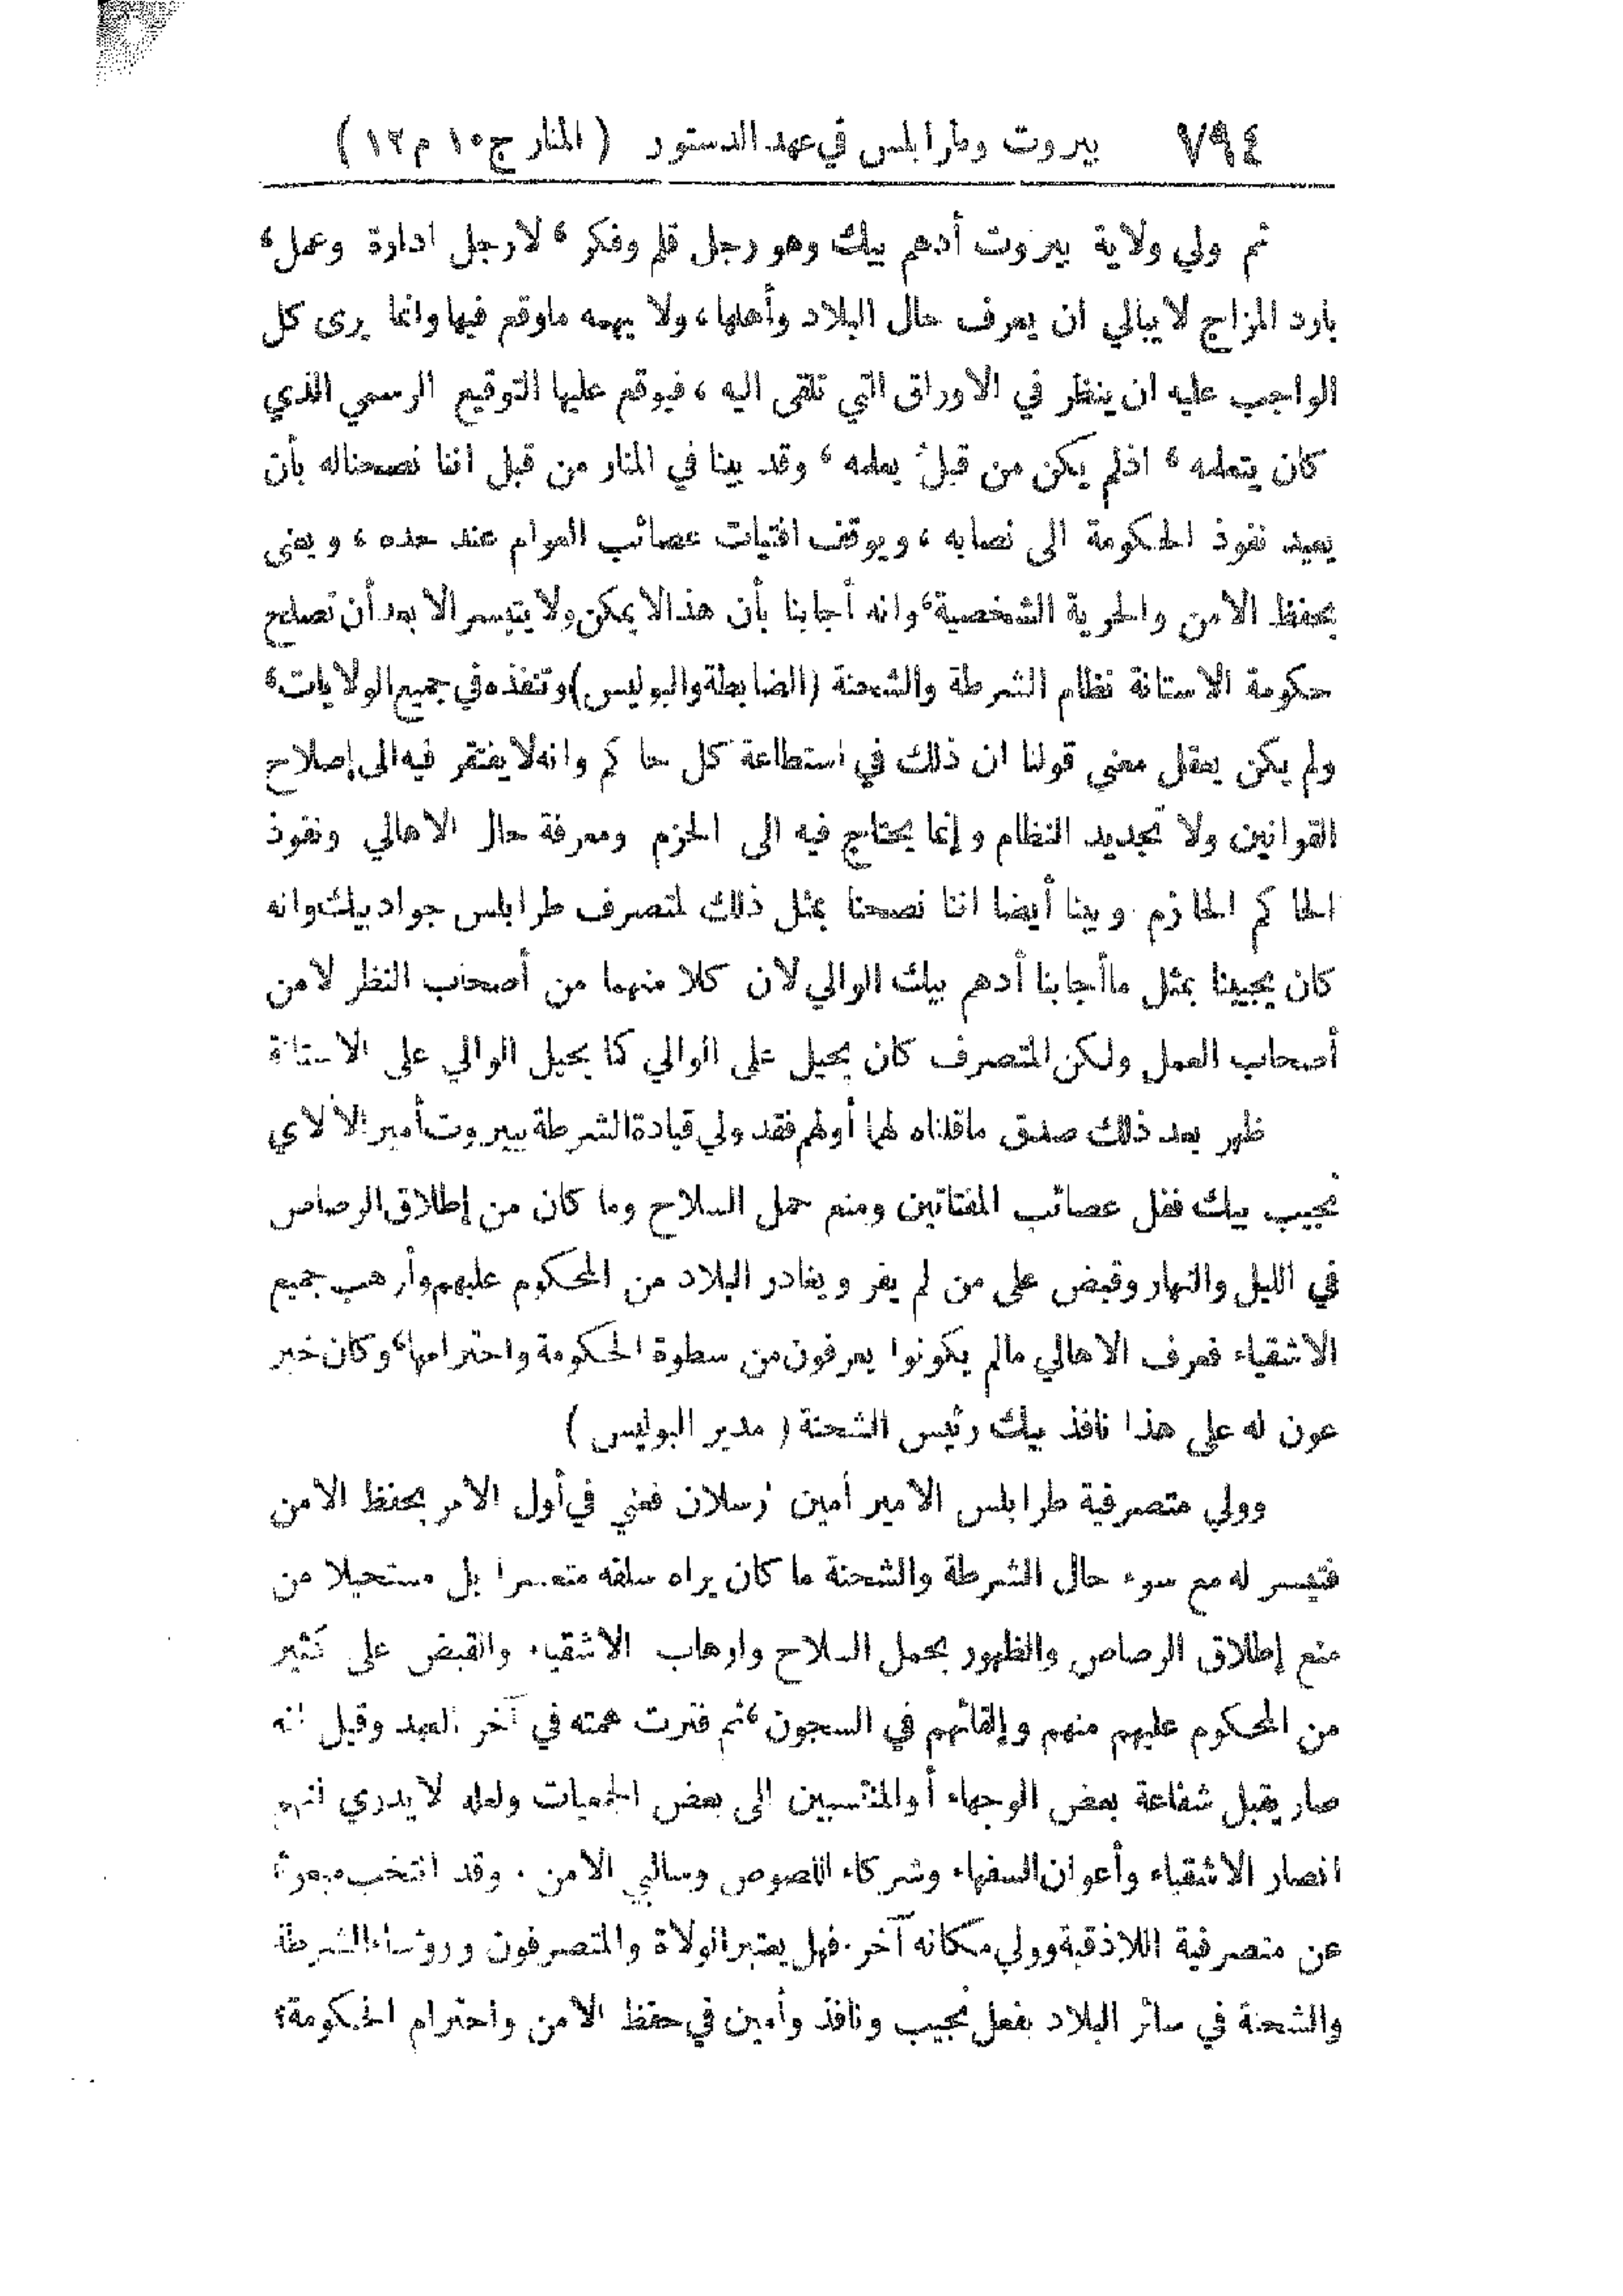 ٧٩٤ بيروت وطرابلس في عهد الدستور ( المنار ج ١٠ م ١٢ )
ثم ولي ولاية بيروت أدهم بيك وهو رجل قلم وفكر ، لا رجل ادارة وعمل ،
بارد المزاج لا يبالي ان يعرف حال البلاد وأهلها ، ولا يهمه ما وقع فيها وانما يرى كل
الواجب عليه ان ينظر في الاوراق التي تلقى اليه ، فيوقع عليها التوقيع الرسمي الذي
كان يتعلمه ، اذ لم يكن من قبلُ يعلمه ، وقد بينا في المنار من قبل اننا نصحنا له بأن
يعيد نفوذ الحكومة الى نصابه ، ويوقف افتيات عصائب العوام عند حده ، ويعنى
بحفظ الامن والحرية الشخصية ، وانه أجابنا بأن هذا لا يمكن ولا يتيسر الا بعد أن تصلح
حكومة الاستانة نظام الشرطة والشحنة (الضابطة والبوليس) وتنفذه في جميع الولايات ،
ولم يكن يعقل معنى قولنا ان ذلك في استطاعة كل حاكم وانه لا يفتقر فيه الى إصلاح
القوانين ولا تجديد النظام وإنما يحتاج فيه الى الحزم ومعرفة حال الاهالي ونفوذ
الحاكم الحازم وبينا أيضا اننا نصحنا بمثل ذلك لمتصرف طرابلس جواد بيك وانه
كان يجيبنا بمثل ما أجابنا أدهم بيك الوالي لان كلا منهما من أصحاب النظر لا من
أصحاب العمل ولكن المتصرف كان يحيل على الوالي كما يحيل الوالي على الاستانة
ظهر بعد ذلك صدق ما قلناه لهما أولهم فقد ولي قيادة الشرطة ببيروت أمير الالاي
نجيب بيك ففل عصائب المفتاتين ومنع حمل السلاح وما كان من إطلاق الرصاص
في الليل والنهار وقبض على من لم يفر ويغادر البلاد من المحكوم عليهم وأرهب جميع
الاشقياء فعرف الاهالي ما لم يكونوا يعرفون من سطوة الحكومة واحترامها ، وكان خير
عون له على هذا نافذ بيك رئيس الشحنة ( مدير البوليس )
وولي متصرفية طرابلس الامير أمين رسلان فعني في أول الامر بحفظ الامن
فتيسر له مع سوء حال الشرطة والشحنة ما كان يراه سلفه متعسرا بل مستحيلا من
منع إطلاق الرصاص والظهور بحمل السلاح وارهاب الاشقياء والقبض على كثير
من المحكوم عليهم منهم وإلقائهم في السجون ، ثم فترت همته في آخر العهد وقيل انه
صار يقبل شفاعة بعض الوجهاء أو المنتسبين الى بعض الجمعيات ولعله لا يدري انهم
انصار الاشقياء وأعوان السفهاء وشركاء اللصوص وسالبي الامن . وقد انتخب مبعوثا
عن متصرفية اللاذقية وولي مكانه آخر . فهل يعتبر الولاة والمتصرفون ورؤساء الشرطة
والشحنة في سائر البلاد بفعل نجيب ونافذ وأمين في حفظ الامن واحترام الحكومة ؟